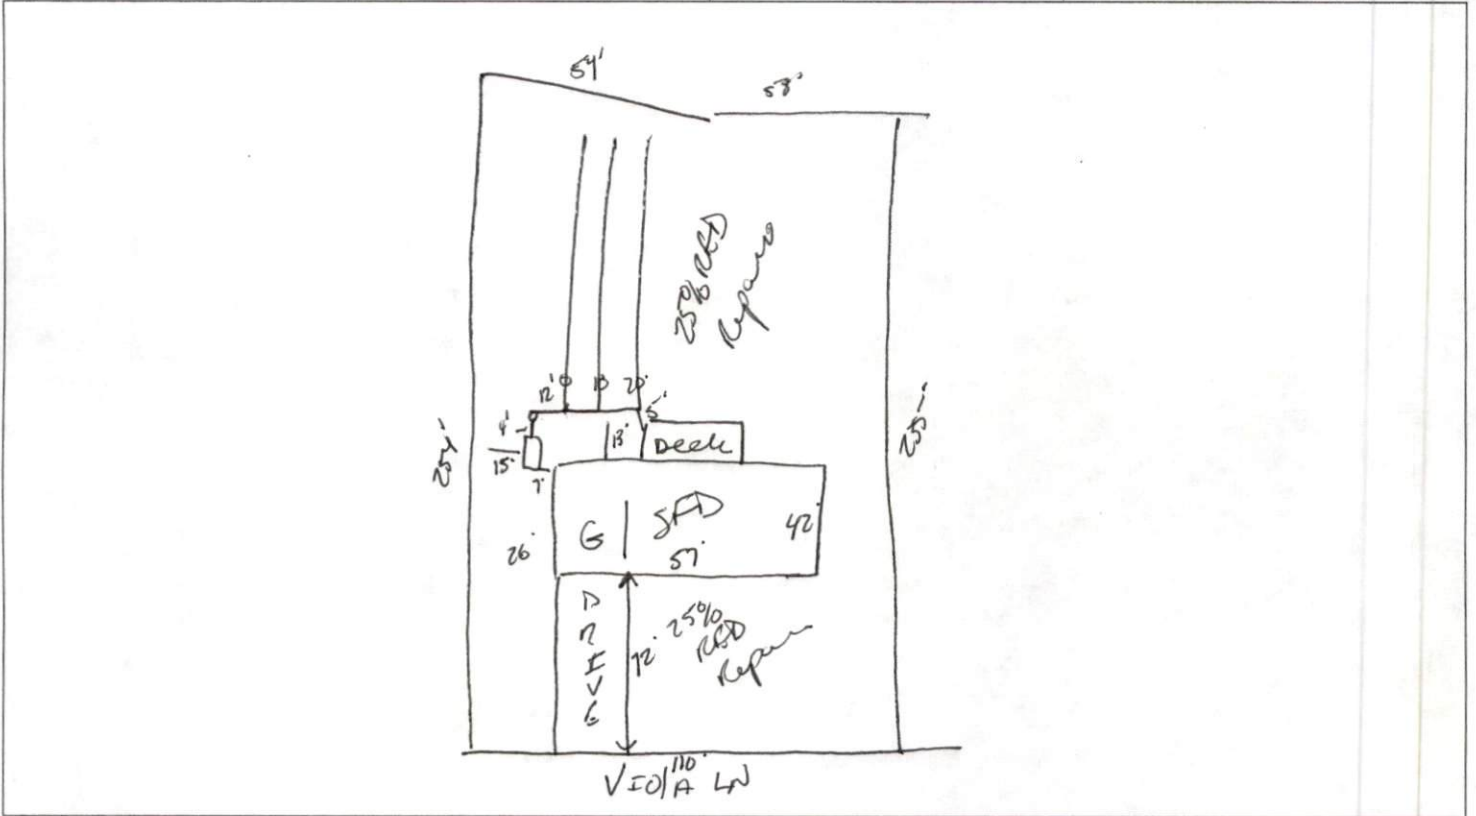 54'
58'
25% RED
Repair
12' 0 10 20'
5'
4'
13'
Deck
15'
7'
254'
255'
G
SFD
42'
57'
26'
DRIVE
72'
25%
RED
Repair
110'
VIOLA LN